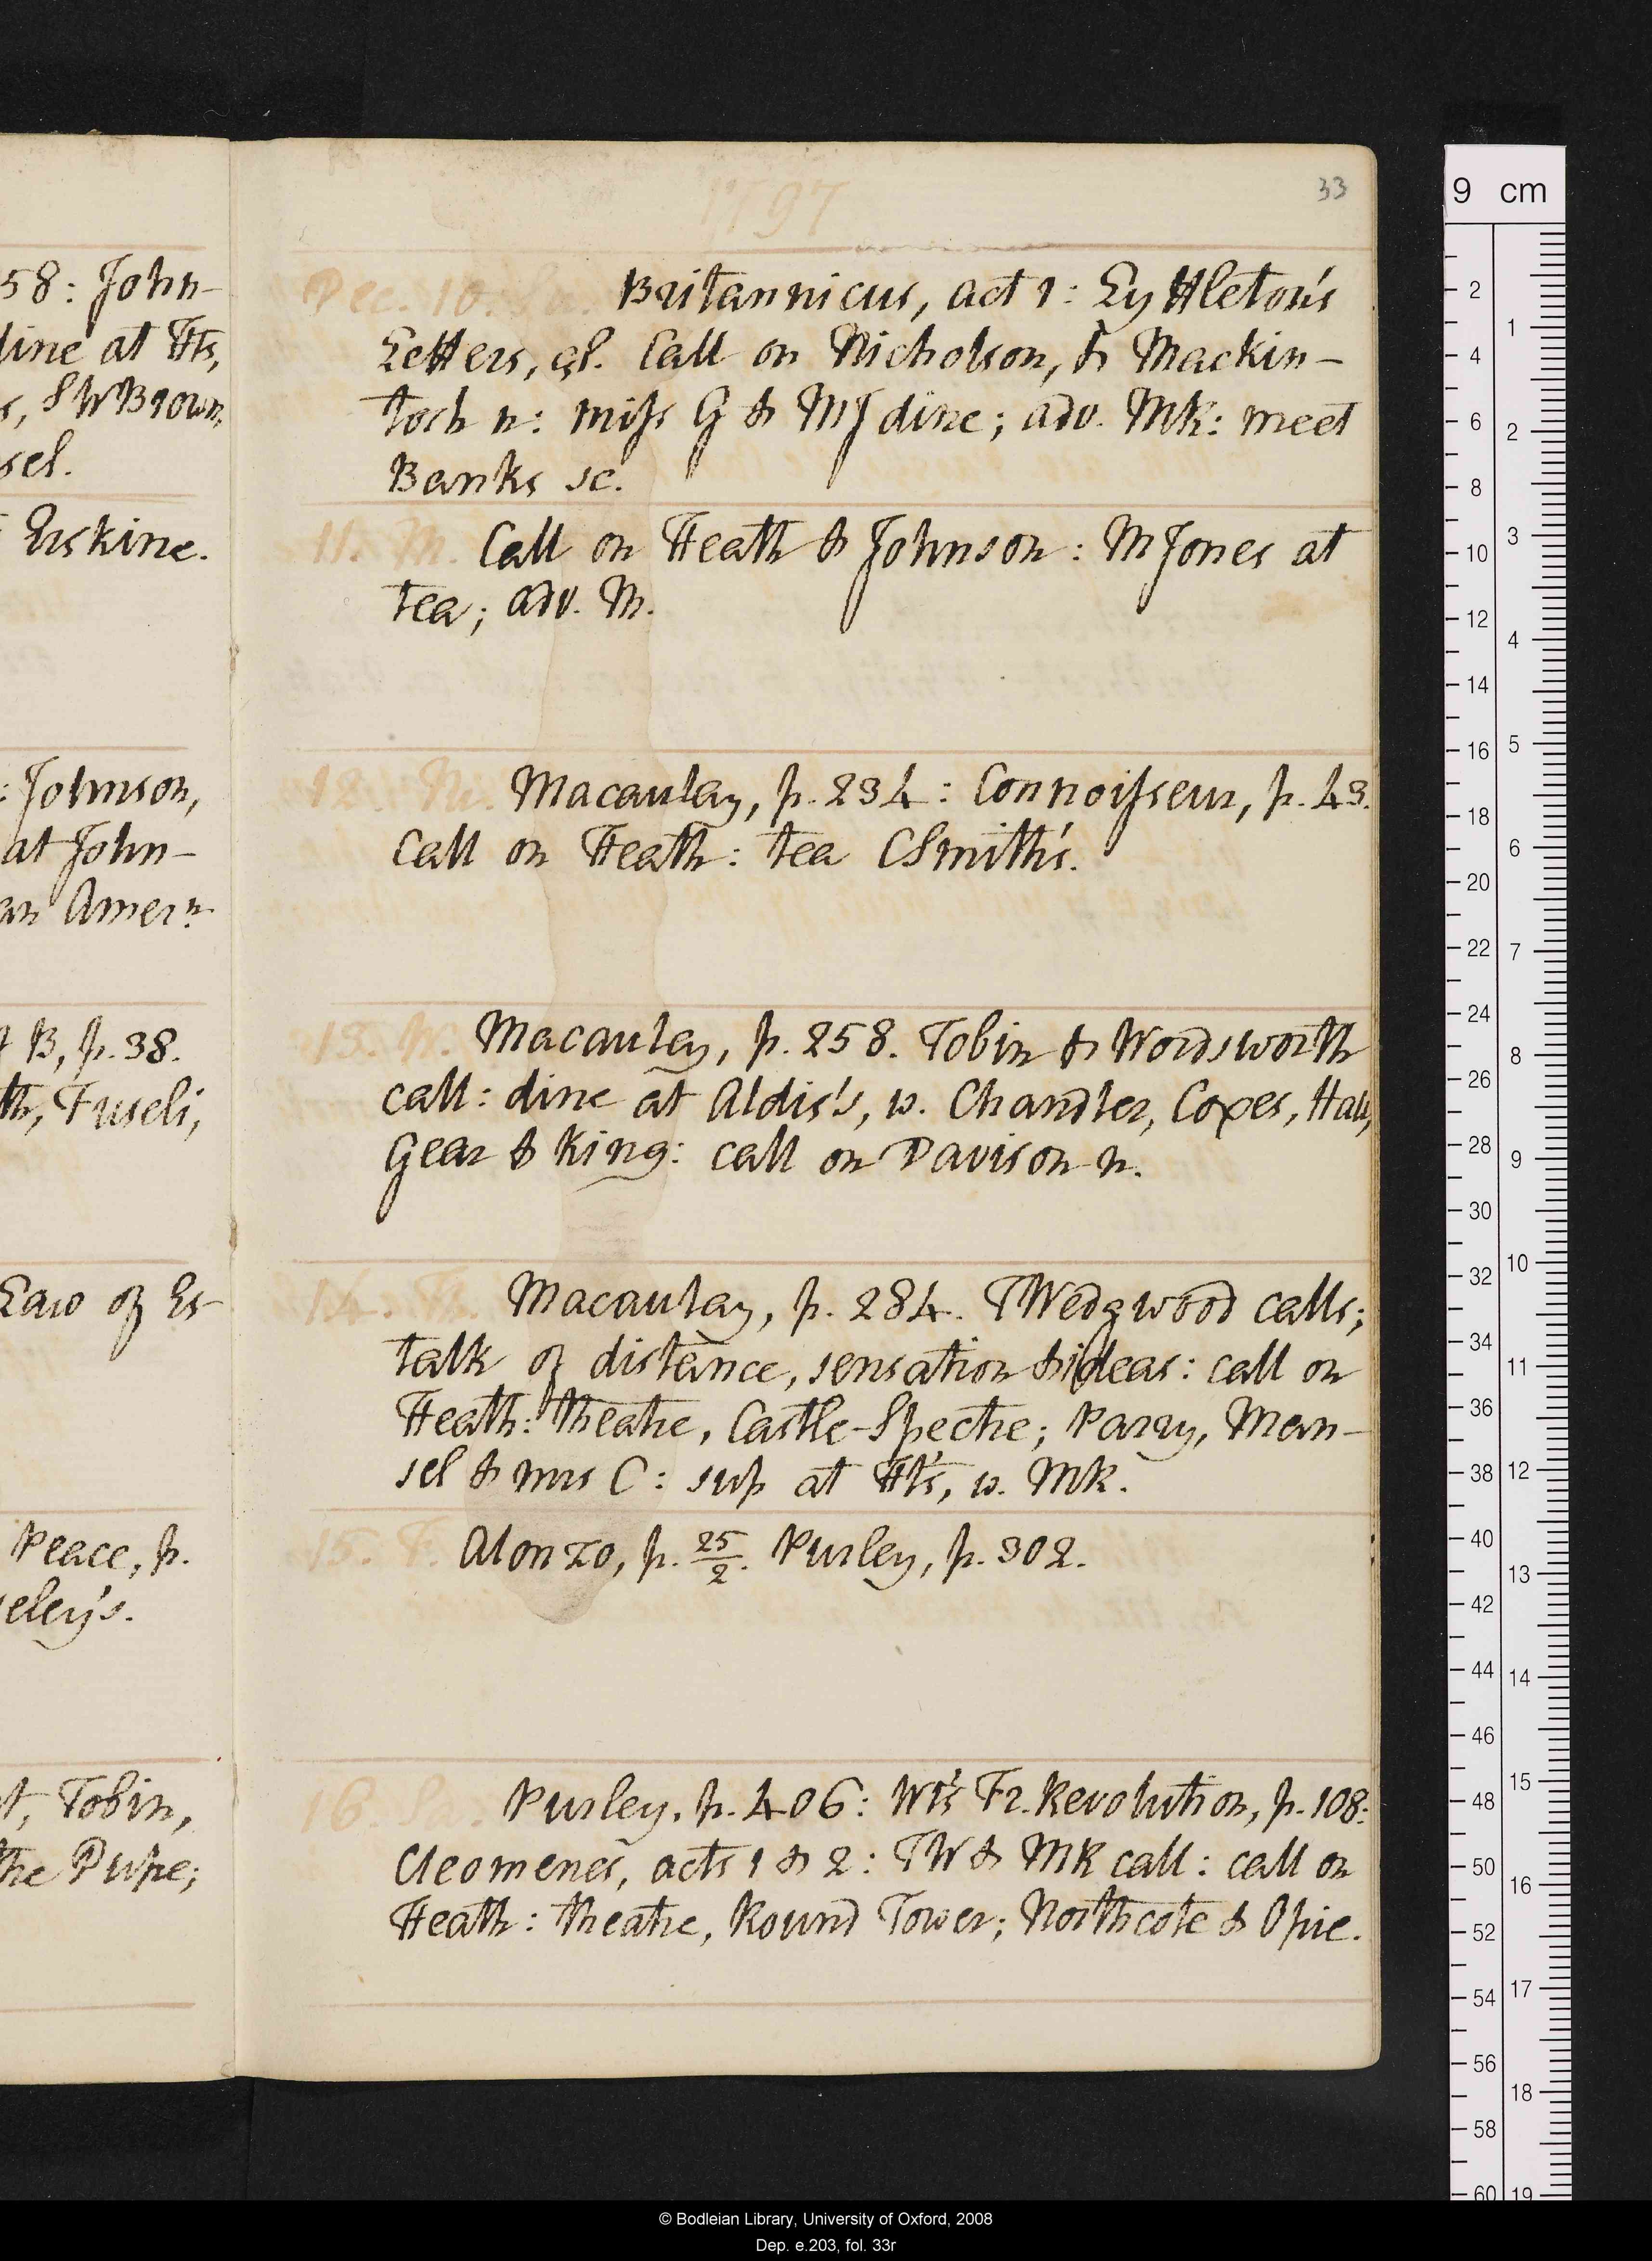 58: John-
dine at Hts,
s, SWBrown,
sel.
Erskine.
: Johnson,
at John-
an Amern
B, p. 38.
th, Fuseli,
Law of Es-
Peace, p.
eley's.
t, Tobin,
the Pupe;
1797
33
Dec. 10. Su. Britannicus, act 1: Lyttleton's
Letters, çà l. Call on Nicholson, & Mackin-
tosh n: miss G & MJ dine; adv. Mk: meet
Banks sc.
11. M. Call on Heath & Johnson: M Jones at
tea; adv. M.
12. Tu. Macaulay, p. 234: Connoisseur, p. 43.
Call on Heath: tea CSmith's.
13. W. Macauley, p. 258. Tobin & Wordsworth
call: dine at Aldis's, w. Chandler, Coxes, Hall,
Gear & King: call on Davison n.
14. Th. Macaulay, p. 284. TWedgwood calls;
talk of distance, sensation & ideas: call on
Heath: theatre, Castle-Spectre; Parry, Man-
sel & mrs C: sup at Ht's, w. MK.
15. F. Alonzo, p. 25/2. Purley, p. 302.
16. Sa. Purley, p. 406: Wt's Fr. Revolution, p. 108:
Cleomenes, acts 1 & 2: TW & MK call: call on
Heath: theatre, Round Tower; Northcote & Opie.
9 cm
© Bodleian Library, University of Oxford, 2008
Dep. e.203, fol. 33r